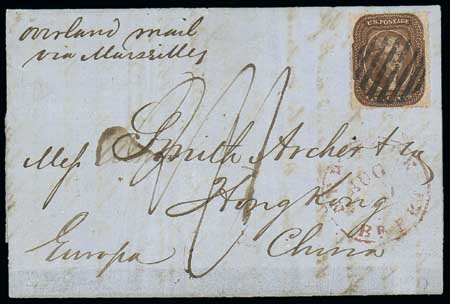 overland mail
via Marseilles
U.S. POSTAGE
Mess Smith Archer & Co
HongKong
Europa China
AUG
BR. PKT